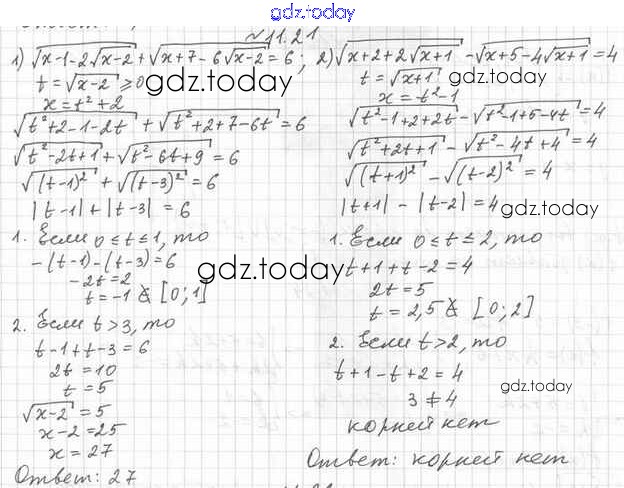 gdz.today
№11.21
1) √(x-1-2√(x-2)) + √(x+7-6√(x-2)) = 6;
t = √(x-2) ≥ 0
x = t²+2
√(t²+2-1-2t) + √(t²+2+7-6t) = 6
√(t²-2t+1) + √(t²-6t+9) = 6
√((t-1)²) + √((t-3)²) = 6
|t-1| + |t-3| = 6
1. Если 0 ≤ t ≤ 1, то
-(t-1)-(t-3) = 6
-2t = 2
t = -1 ∉ [0; 1]
2. Если t > 3, то
t-1+t-3 = 6
2t = 10
t = 5
√(x-2) = 5
x-2 = 25
x = 27
Ответ: 27
2) √(x+2+2√(x+1)) - √(x+5-4√(x+1)) = 4
t = √(x+1)
x = t²-1
√(t²-1+2+2t) - √(t²-1+5-4t) = 4
√(t²+2t+1) - √(t²-4t+4) = 4
√((t+1)²) - √((t-2)²) = 4
|t+1| - |t-2| = 4
1. Если 0 ≤ t ≤ 2, то
t+1+t-2 = 4
2t = 5
t = 2,5 ∉ [0; 2]
2. Если t > 2, то
t+1-t+2 = 4
3 ≠ 4
корней нет
Ответ: корней нет
gdz.today
gdz.today
gdz.today
gdz.today
gdz.today